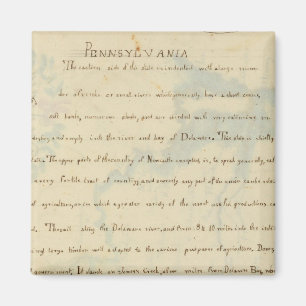 PENNSYLVANIA
The eastern side of the state is indented with a large num
ber of creeks or small rivers which generally have a short course,
soft banks, numerous shoals, and are skirted with very extensive m
and empty into the river and bay of Delaware. This state is chiefly
ture. The upper part of the county of Newcastle excepted, is, to speak generally, ext
every fertile tract of country, and scarcely any part of the union can be select
of agriculture, or in which a greater variety of the most useful productions, can
d. The soil along the Delaware river, and from 8 & 10 miles into the inte
very large timber well adapted to the various purposes of agriculture. Dover,
government. It stands on Jones's Creek, a few miles from Delaware Bay,